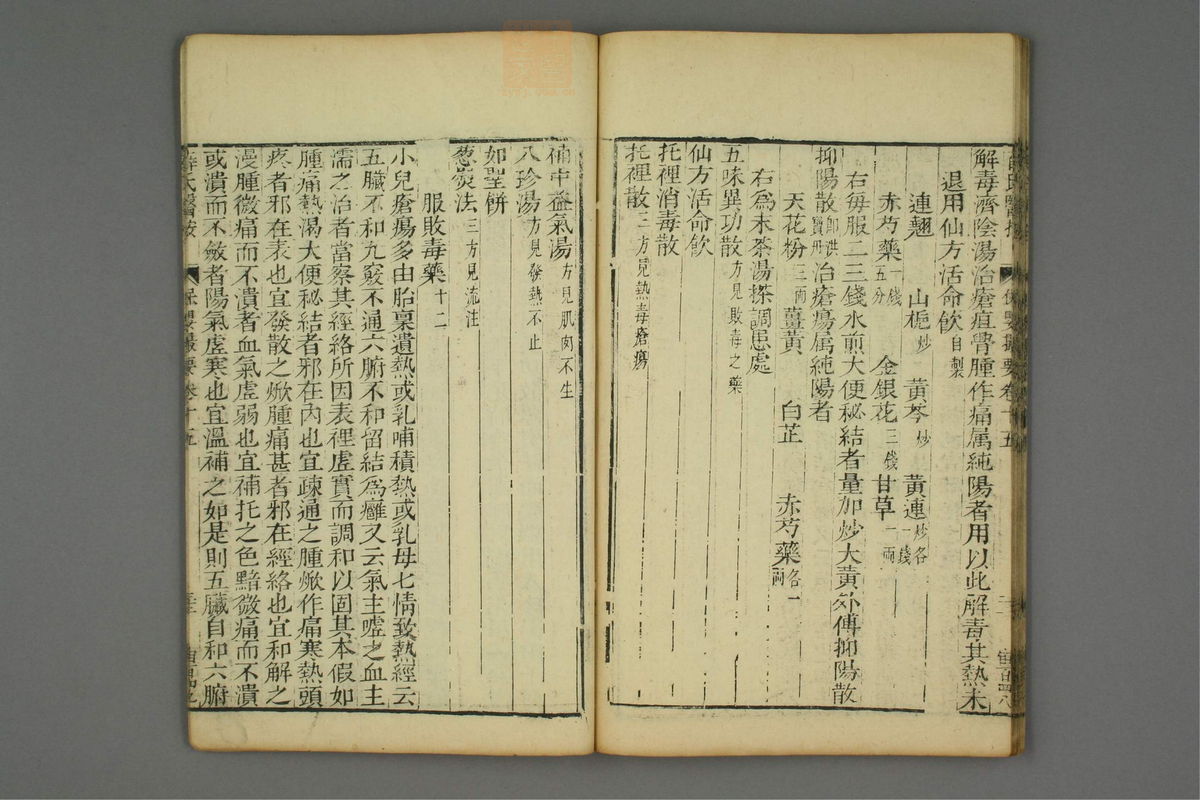 解毒濟陰湯治瘡疽骨腫作痛属純陽者用以此解毒其熱未
退用仙方活命飲自製
連翹 山梔炒 黃芩炒 黃連炒各一錢
赤芍藥一錢五分 金銀花三錢 甘草一兩
右每服二三錢水煎大便秘結者量加炒大黃外傅抑陽散
抑陽散即洪寶丹治瘡瘍属純陽者
天花粉三兩 薑黃 白芷 赤芍藥各一兩
右爲末茶湯搽調患處
五味異功散方見敗毒之藥
仙方活命飲
托裡消毒散
托裡散三方見熱毒瘡瘍
補中益氣湯方見肌肉不生
八珍湯方見發熱不止
如聖餅
葱熨法三方見流注
服敗毒藥十二
小兒瘡瘍多由胎稟遺熱或乳哺積熱或乳母七情致熱經云
五臟不和九竅不通六腑不和留結爲癰又云氣主噓之血主
濡之治者當察其經絡所因表裡虛實而調和以固其本假如
腫痛熱渴大便秘結者邪在內也宜疎通之腫焮作痛寒熱頭
疼者邪在表也宜發散之焮腫痛甚者邪在經絡也宜和解之
漫腫微痛而不潰者血氣虛弱也宜補托之色黯微痛而不潰
或潰而不斂者陽氣虛寒也宜溫補之如是則五臟自和六腑
薛氏醫按 保嬰撮要卷十五